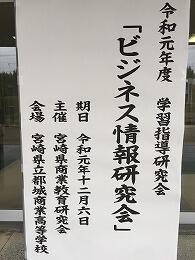 令和元年度 学習指導研究会
「ビジネス情報研究会」
期日 令和元年十二月六日
主催 宮崎県商業教育研究会
会場 宮崎県立都城商業高等学校